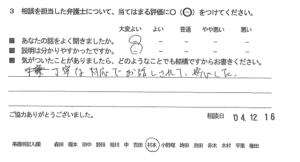 3 相談を担当した弁護士について、当てはまる評価に○(⊖)をつけてください。
大変よい よい 普通 やや悪い 悪い
■ あなたの話をよく聞きましたか。
■ 説明は分かりやすかったですか。
■ 気がついたことがありましたら、どのようなことでも結構ですからお書きください。
丁寧な対応でお話しされて、安心した。
ご協力ありがとうございました。 相談日 '04.12.16
事務所記入欄 森田 榎本 田中 野田 相川 申 吉田 村本 小野塚 時田 池田 鈴木 木村 平葉 植田